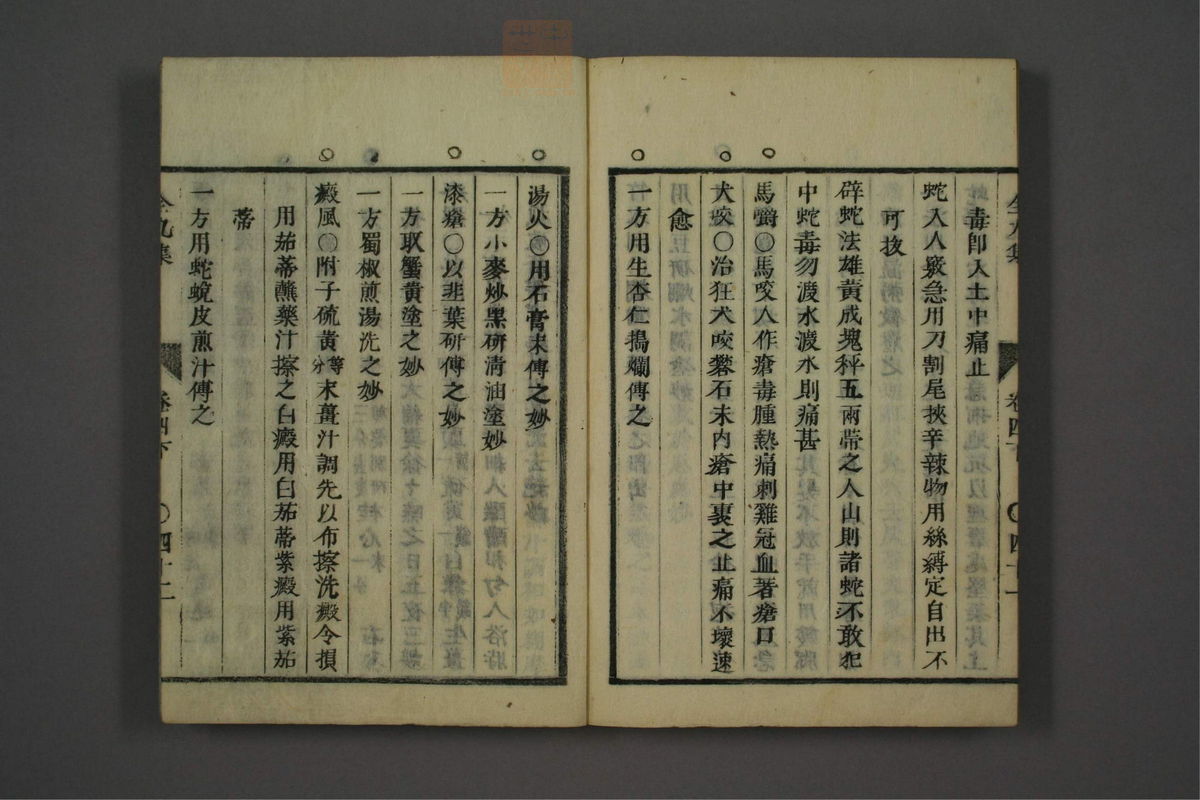 毒即入土中痛止
蛇入人竅急用刀割尾挾辛辣物用絲縛定自出不
可拔
辟蛇法雄黃成塊秤五兩帶之入山則諸蛇不敢犯
中蛇毒勿渡水渡水則痛甚
馬嚼〇馬咬人作瘡毒腫熱痛刺雞冠血著瘡口立愈
犬咬〇治狂犬咬礬石末內瘡中裹之止痛不壞速
愈
一方用生杏仁搗爛傅之
卷四下
〇四十一
湯火〇用石膏末傅之妙
一方小麥炒黑研清油塗妙
漆瘡〇以韭葉研傅之妙
一方取蟹黃塗之妙
一方蜀椒煎湯洗之妙
癜風〇附子硫黃等分末薑汁調先以布擦洗癜令損
用茄蒂蘸藥汁擦之白癜用白茄蒂紫癜用紫茄
蒂
一方用蛇蛻皮煎汁傅之
全九集
卷四下
〇四十二